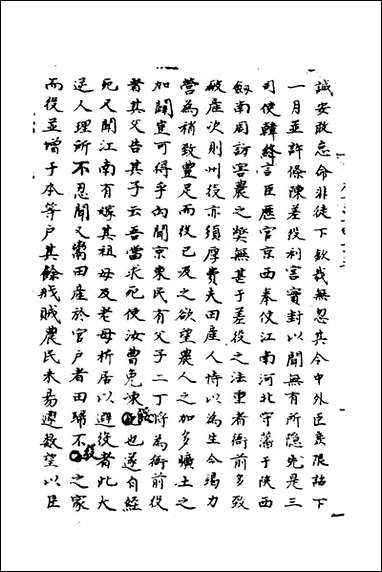 誠安敢忘命非徒下欽哉無忽其令中外臣庶限詔下
一月並許條陳差役利害實封以聞無有所隱先是三
司使韓絳言臣歷官京西奉使江南河北守藩于陝西
劒南周訪害農之獘無甚于差役之法重者衙前多致
破產次則州役亦須厚費夫田產人恃以為生今竭力
營為稍致豐足而役已及之欲望農人之加多曠土之
加闢豈可得乎向聞京東民有父子二丁將為衙前役
者其父告其子云吾當求死使汝曹免凍餒也遂自經
死又聞江南有嫁其祖母及老母析居以避役者此大
逆人理所不忍聞又鬻田產於官戶者田歸不役之家
而役並增于本等戶其餘戕賊農民未易遽數望以臣